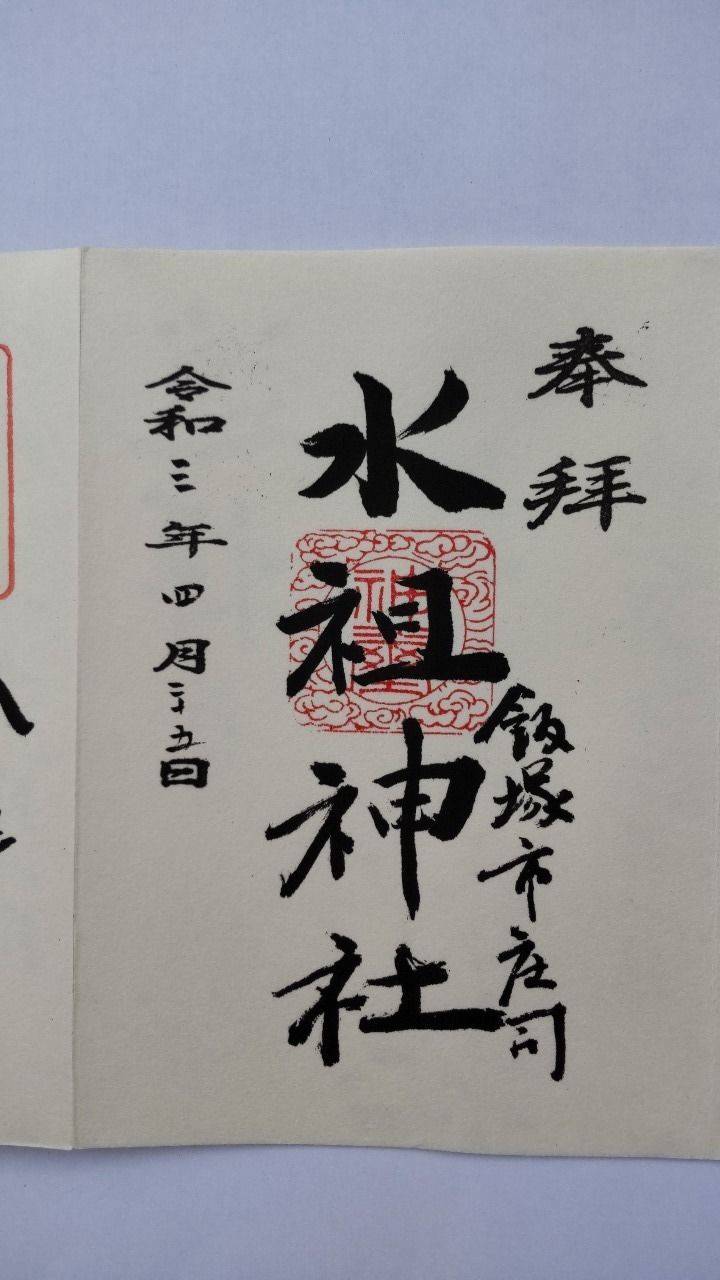 奉拝
飯塚市庄司
水祖神社
令和三年四月二十五日